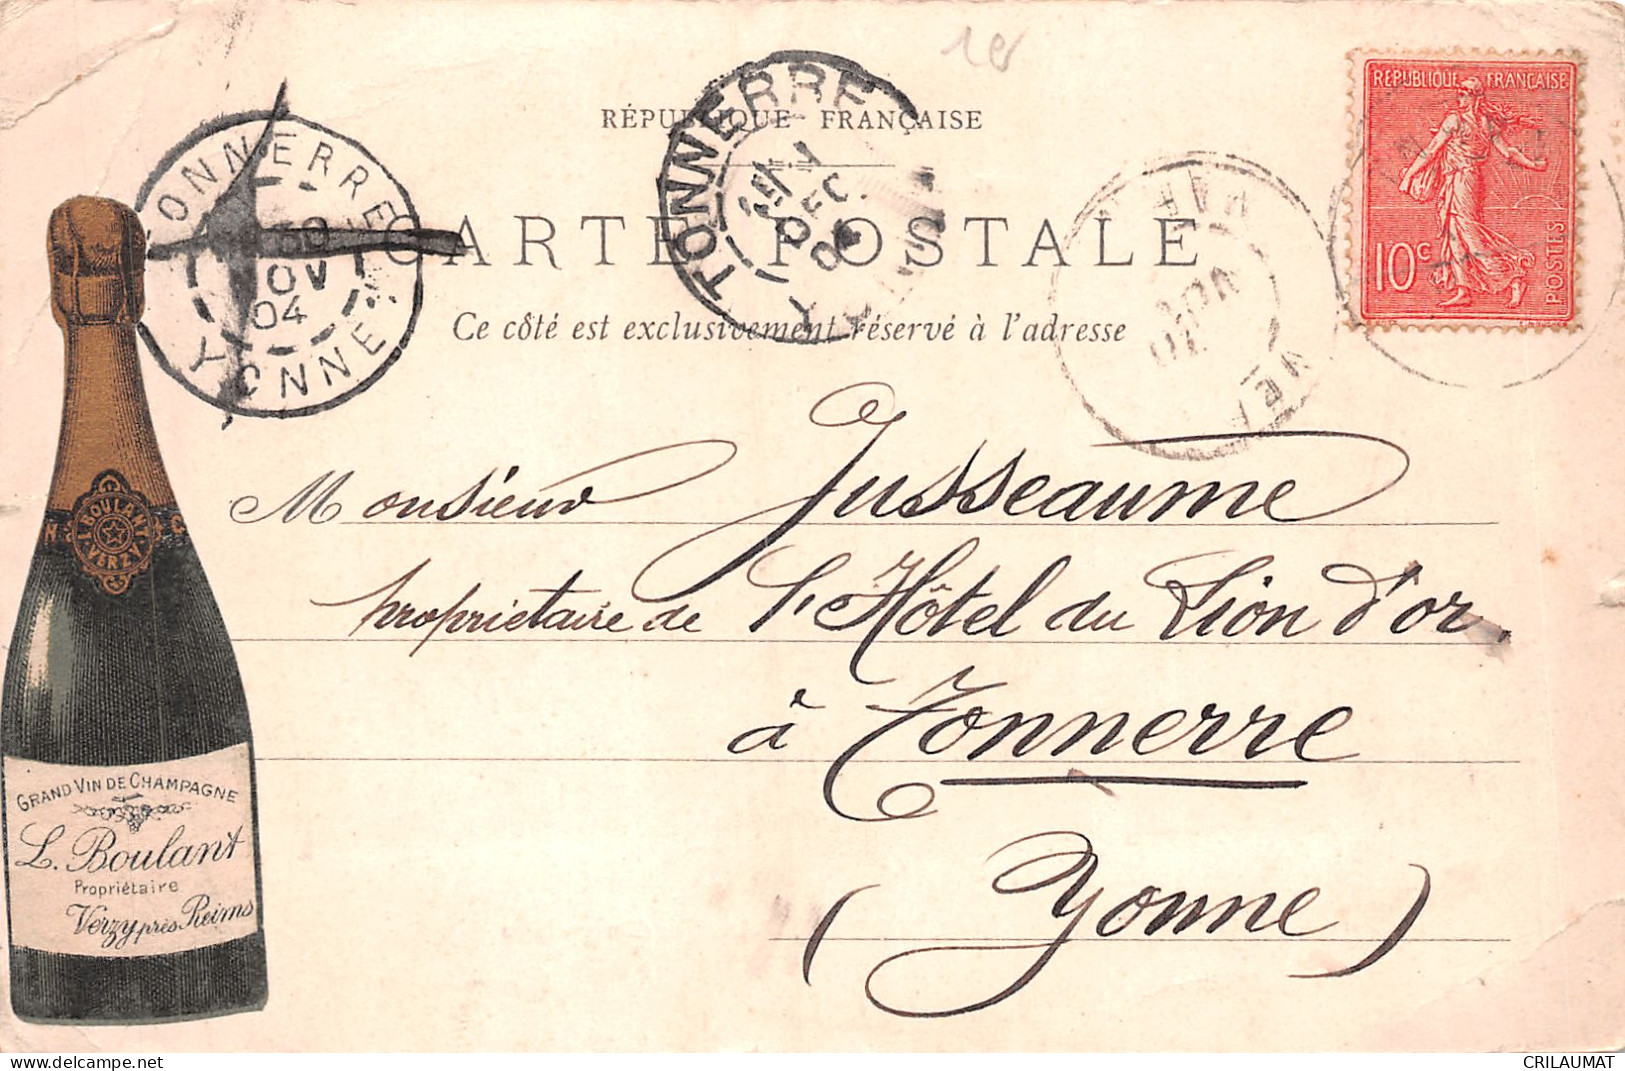 RÉPUBLIQUE FRANÇAISE
CARTE POSTALE
Ce côté est exclusivement réservé à l'adresse
RÉPUBLIQUE FRANÇAISE
10c
POSTES
TONNERRE
30
NOV
04
YONNE
TONNERRE
DEC.
04
Monsieur Jusseaume
propriétaire de l'Hôtel du Lion d'or.
à Tonnerre
(Yonne)
L. BOULANT
VERZY
GRAND VIN DE CHAMPAGNE
L. Boulant
Propriétaire
Verzy près Reims
delcampe.net
CRILAUMAT